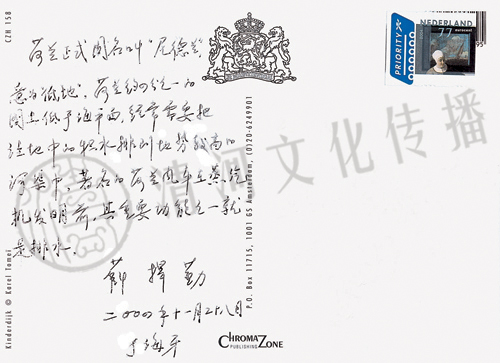 CZH 158
荷兰正式国名叫"尼德兰"
意为低地。荷兰约四分之一的
国土低于海平面,经常需要把
洼地中的积水排到地势较高的
河渠中,著名的荷兰风车在蒸汽
机发明前,其主要功能之一就
是排水。
薛择勤
二000年十一月二十八日
于海牙
Kinderdijk © Karel Tomeï
P.O. Box 11715, 1001 GS Amsterdam, (0)20-6249901
CHROMAZONE
PUBLISHING
PRIORITY
NEDERLAND
77 eurocent
文化传播